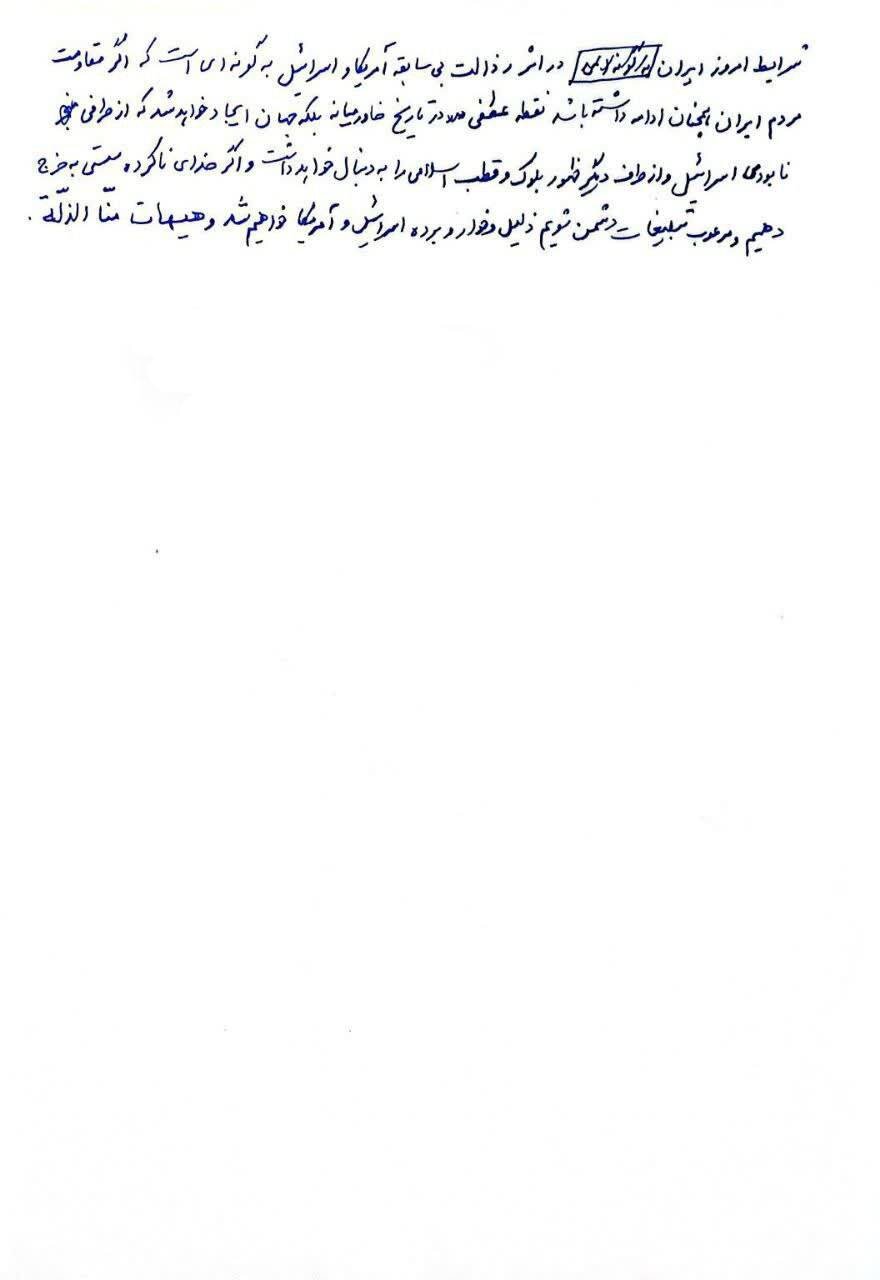 شرایط امروز ایران در اثر رذالت بی سابقه آمریکا و اسرائیل به گونه ای است که اگر مقاومت
مردم ایران همچنان ادامه داشته باشد نقطه عطفی در تاریخ خاورمیانه بلکه جهان ایجاد خواهد شد که از طرفی
نابودی اسرائیل و از طرف دیگر ظهور بلوک و قطب اسلامی را به دنبال خواهد داشت و اگر خدای ناکرده سستی به خرج
دهیم و مرعوب تبلیغات دشمن شویم ذلیل و خوار و برده اسرائیل و آمریکا خواهیم شد و هیهات منّا الذلّة .